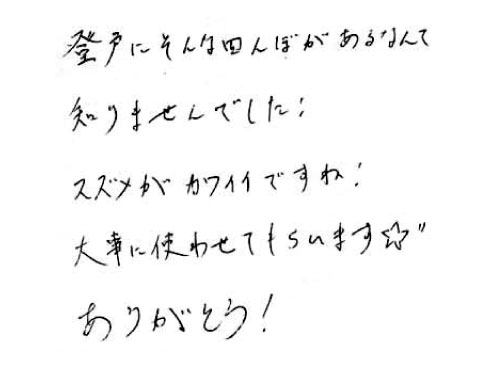 登戸にそんな田んぼがあるなんて
知りませんでした!
スズメがカワイイですね!
大事に使わせてもらいます☆"
ありがとう!